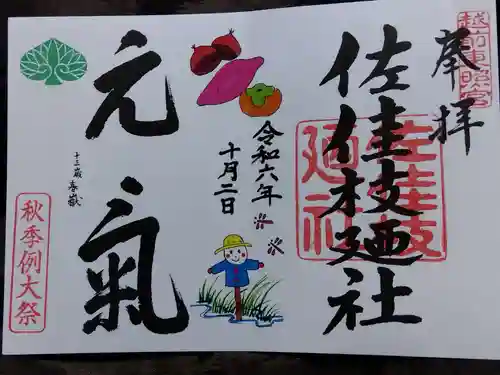 越前東照宮
奉拝
佐佳枝廼社
佐佳枝
廼社
令和六年
十月二日
元氣
十三歳 春嶽
秋季例大祭